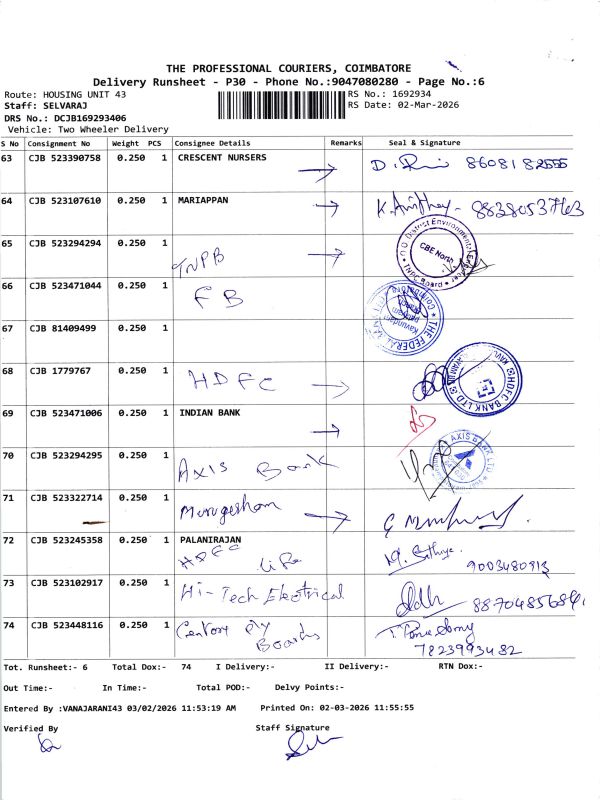 THE PROFESSIONAL COURIERS, COIMBATORE
Delivery Runsheet - P30 - Phone No.:9047080280 - Page No.:6
Route: HOUSING UNIT 43 RS No.: 1692934
Staff: SELVARAJ RS Date: 02-Mar-2026
DRS No.: DCJB169293406
Vehicle: Two Wheeler Delivery
S No Consignment No Weight PCS Consignee Details Remarks Seal & Signature
63 CJB 523390758 0.250 1 CRESCENT NURSERS → 8608182555
64 CJB 523107610 0.250 1 MARIAPPAN → 8838053763
65 CJB 523294294 0.250 1 TNPB → CBE North
66 CJB 523471044 0.250 1 FB THE FEDERAL
67 CJB 81409499 0.250 1
68 CJB 1779767 0.250 1 HDFC → HDFC BANK LTD
69 CJB 523471006 0.250 1 INDIAN BANK →
70 CJB 523294295 0.250 1 Axis Bank AXIS BANK LTD
71 CJB 523322714 0.250 1 Murugesham →
72 CJB 523245358 0.250 1 PALANIRAJAN
HDFC Life 9003480913
73 CJB 523102917 0.250 1 Hi-Tech Electrical
74 CJB 523448116 0.250 1 Century Ply
Boards 7823993482
Tot. Runsheet:- 6 Total Dox:- 74 I Delivery:- II Delivery:- RTN Dox:-
Out Time:- In Time:- Total POD:- Delvy Points:-
Entered By :VANAJARANI43 03/02/2026 11:53:19 AM Printed On: 02-03-2026 11:55:55
Verified By Staff Signature